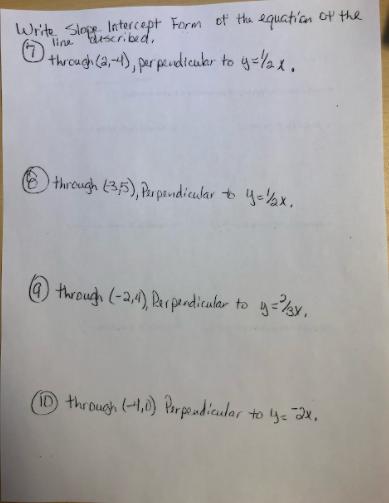 Write Slope Intercept Form of the equation of the
line described.
7 through (2,-4), perpendicular to y=1/2 x.
8 through (-3,5), Perpendicular to y=1/2x.
9 through (-2,4), Perpendicular to y=2/3x.
10 through (-4,0) Perpendicular to y= -2x.